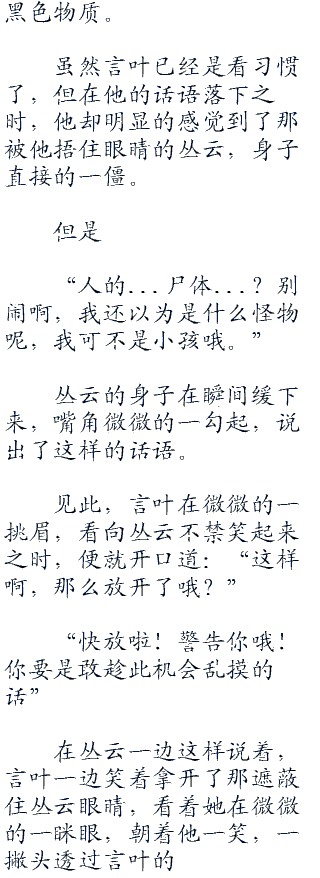 黑色物质。
虽然言叶已经是看习惯
了，但在他的话语落下之
时，他却明显的感觉到了那
被他捂住眼睛的丛云，身子
直接的一僵。
但是
“人的...尸体...？别
闹啊，我还以为是什么怪物
呢，我可不是小孩哦。”
丛云的身子在瞬间缓下
来，嘴角微微的一勾起，说
出了这样的话语。
见此，言叶在微微的一
挑眉，看向丛云不禁笑起来
之时，便就开口道：“这样
啊，那么放开了哦？”
“快放啦！警告你哦！
你要是敢趁此机会乱摸的
话”
在丛云一边这样说着，
言叶一边笑着拿开了那遮蔽
住丛云眼睛，看着她在微微
的一眯眼，朝着他一笑，一
撇头透过言叶的